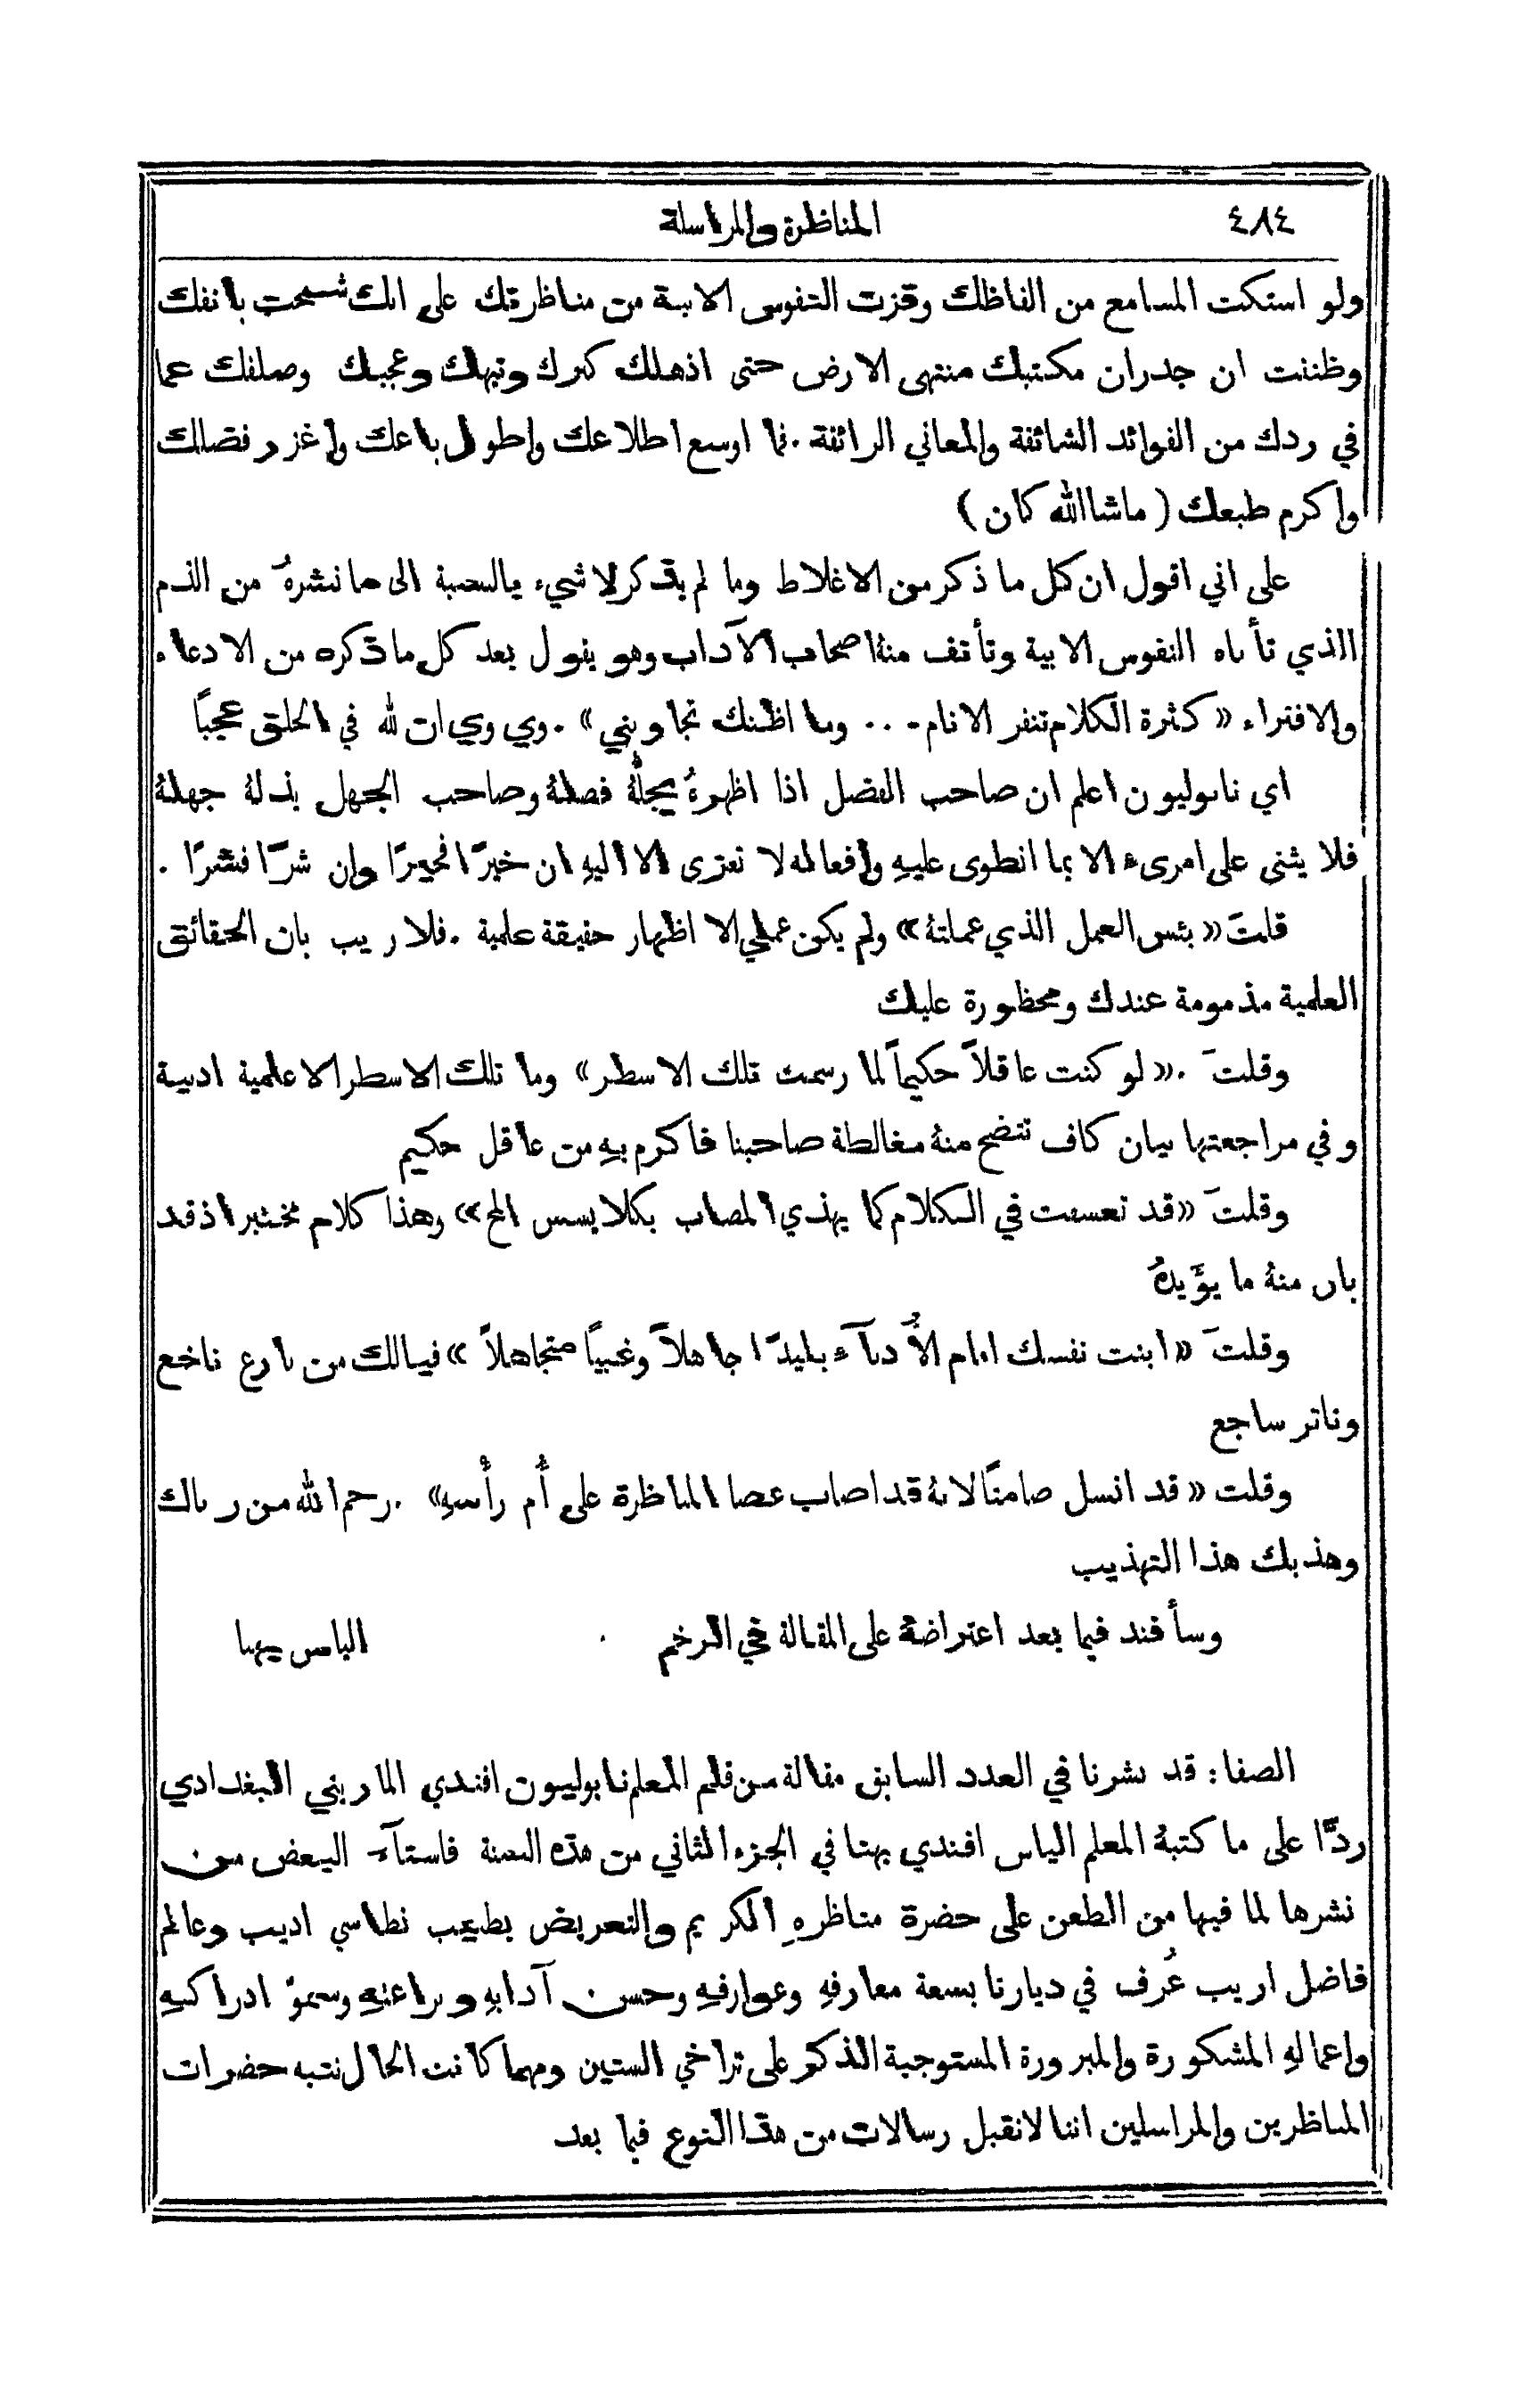 ٤٨٤ المناظرة والمراسلة
ولو استكت المسامع من الفاظك وقزت النفوس الابية من مناظرتك على انك شمخت بانفك
وظننت ان جدران مكتبك منتهى الارض حتى اذهلك كبرك وتيهك وعجبك وصلفك عما
في ردك من الفوائد الشائقة والمعاني الرائقة . فما اوسع اطلاعك واطول باعك واغزر فضلك
واكرم طبعك ( ماشاالله كان )
على اني اقول ان كل ما ذكر من الاغلاط وما لم يذكر لا شيء بالنسبة الى ما نشرهُ من الذم
الذي تأباه النفوس الابية وتأنف منهُ اصحاب الآداب وهو يقول بعد كل ما ذكره من الادعاء
والافتراء « كثرة الكلام تنفر الانام . . . وما اظنك تجاوبني » . وي وي ان لله في الخلق عجبًا
اي نابوليون اعلم ان صاحب الفضل اذا اظهرهُ يجلّهُ فضلهُ وصاحب الجهل يذلهُ جهلهُ
فلا يثنى على امرىء الا بما انطوى عليهِ وافعاله لا تعزى الا اليهِ ان خيرًا فخيرًا وان شرًّا فشرًا .
قلتَ « بئس العمل الذي عملتهُ » ولم يكن عملي الا اظهار حقيقة علمية . فلا ريب بان الحقائق
العلمية مذمومة عندك ومحظورة عليك
وقلتَ . « لو كنت عاقلاً حكيماً لما رسمت تلك الاسطر » وما تلك الاسطر الا علمية ادبية
وفي مراجعتها بيان كاف تتضح منهُ مغالطة صاحبنا فاكرم بهِ من عاقل حكيم
وقلتَ « قد تعسفت في الكلام كما يهذي المصاب بكلابسس الخ » وهذا كلام مختبر اذ قد
بان منهُ ما يؤيدهُ
وقلتَ « ابنت نفسك امام الأُدبآء بليدًا جاهلاً وغبيًا متجاهلاً » فيالك من بارع ناخع
وناثر ساجع
وقلت « قد انسل صامتًا لانهُ قد اصاب عصا المناظرة على أُم رأسهِ » . رحم الله من رباك
وهذبك هذا التهذيب
وسأفند فيما بعد اعتراضهُ على المقالة في الرخم الياس بهنا
الصفا : قد نشرنا في العدد السابق مقالة من قلم المعلم نابوليون افندي الماريني البغدادي
ردًّا على ما كتبهُ المعلم الياس افندي بهنا في الجزء الثاني من هذه السنة فاستآء البعض من
نشرها لما فيها من الطعن على حضرة مناظرهِ الكريم والتعريض بطبيب نطاسي اديب وعالم
فاضل اريب عُرف في ديارنا بسعة معارفهِ وعوارفهِ وحسن آدابهِ وبراعتهِ وسموّ ادراكهِ
واعمالهِ المشكورة والمبرورة المستوجبة الذكر على تراخي السنين ومهما كانت الحال ننبه حضرات
المناظرين والمراسلين اننا لا نقبل رسالات من هذا النوع فيما بعد